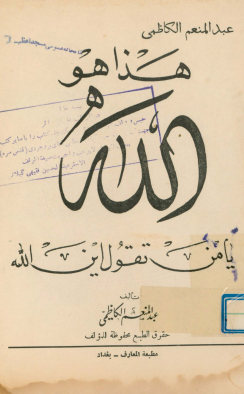 عبد المنعم الكاظمي
هذا هو
الله
يا من تقول اين الله
تأليف
عبد المنعم الكاظمي
حقوق الطبع محفوظة للمؤلف
مطبعة المعارف - بغداد